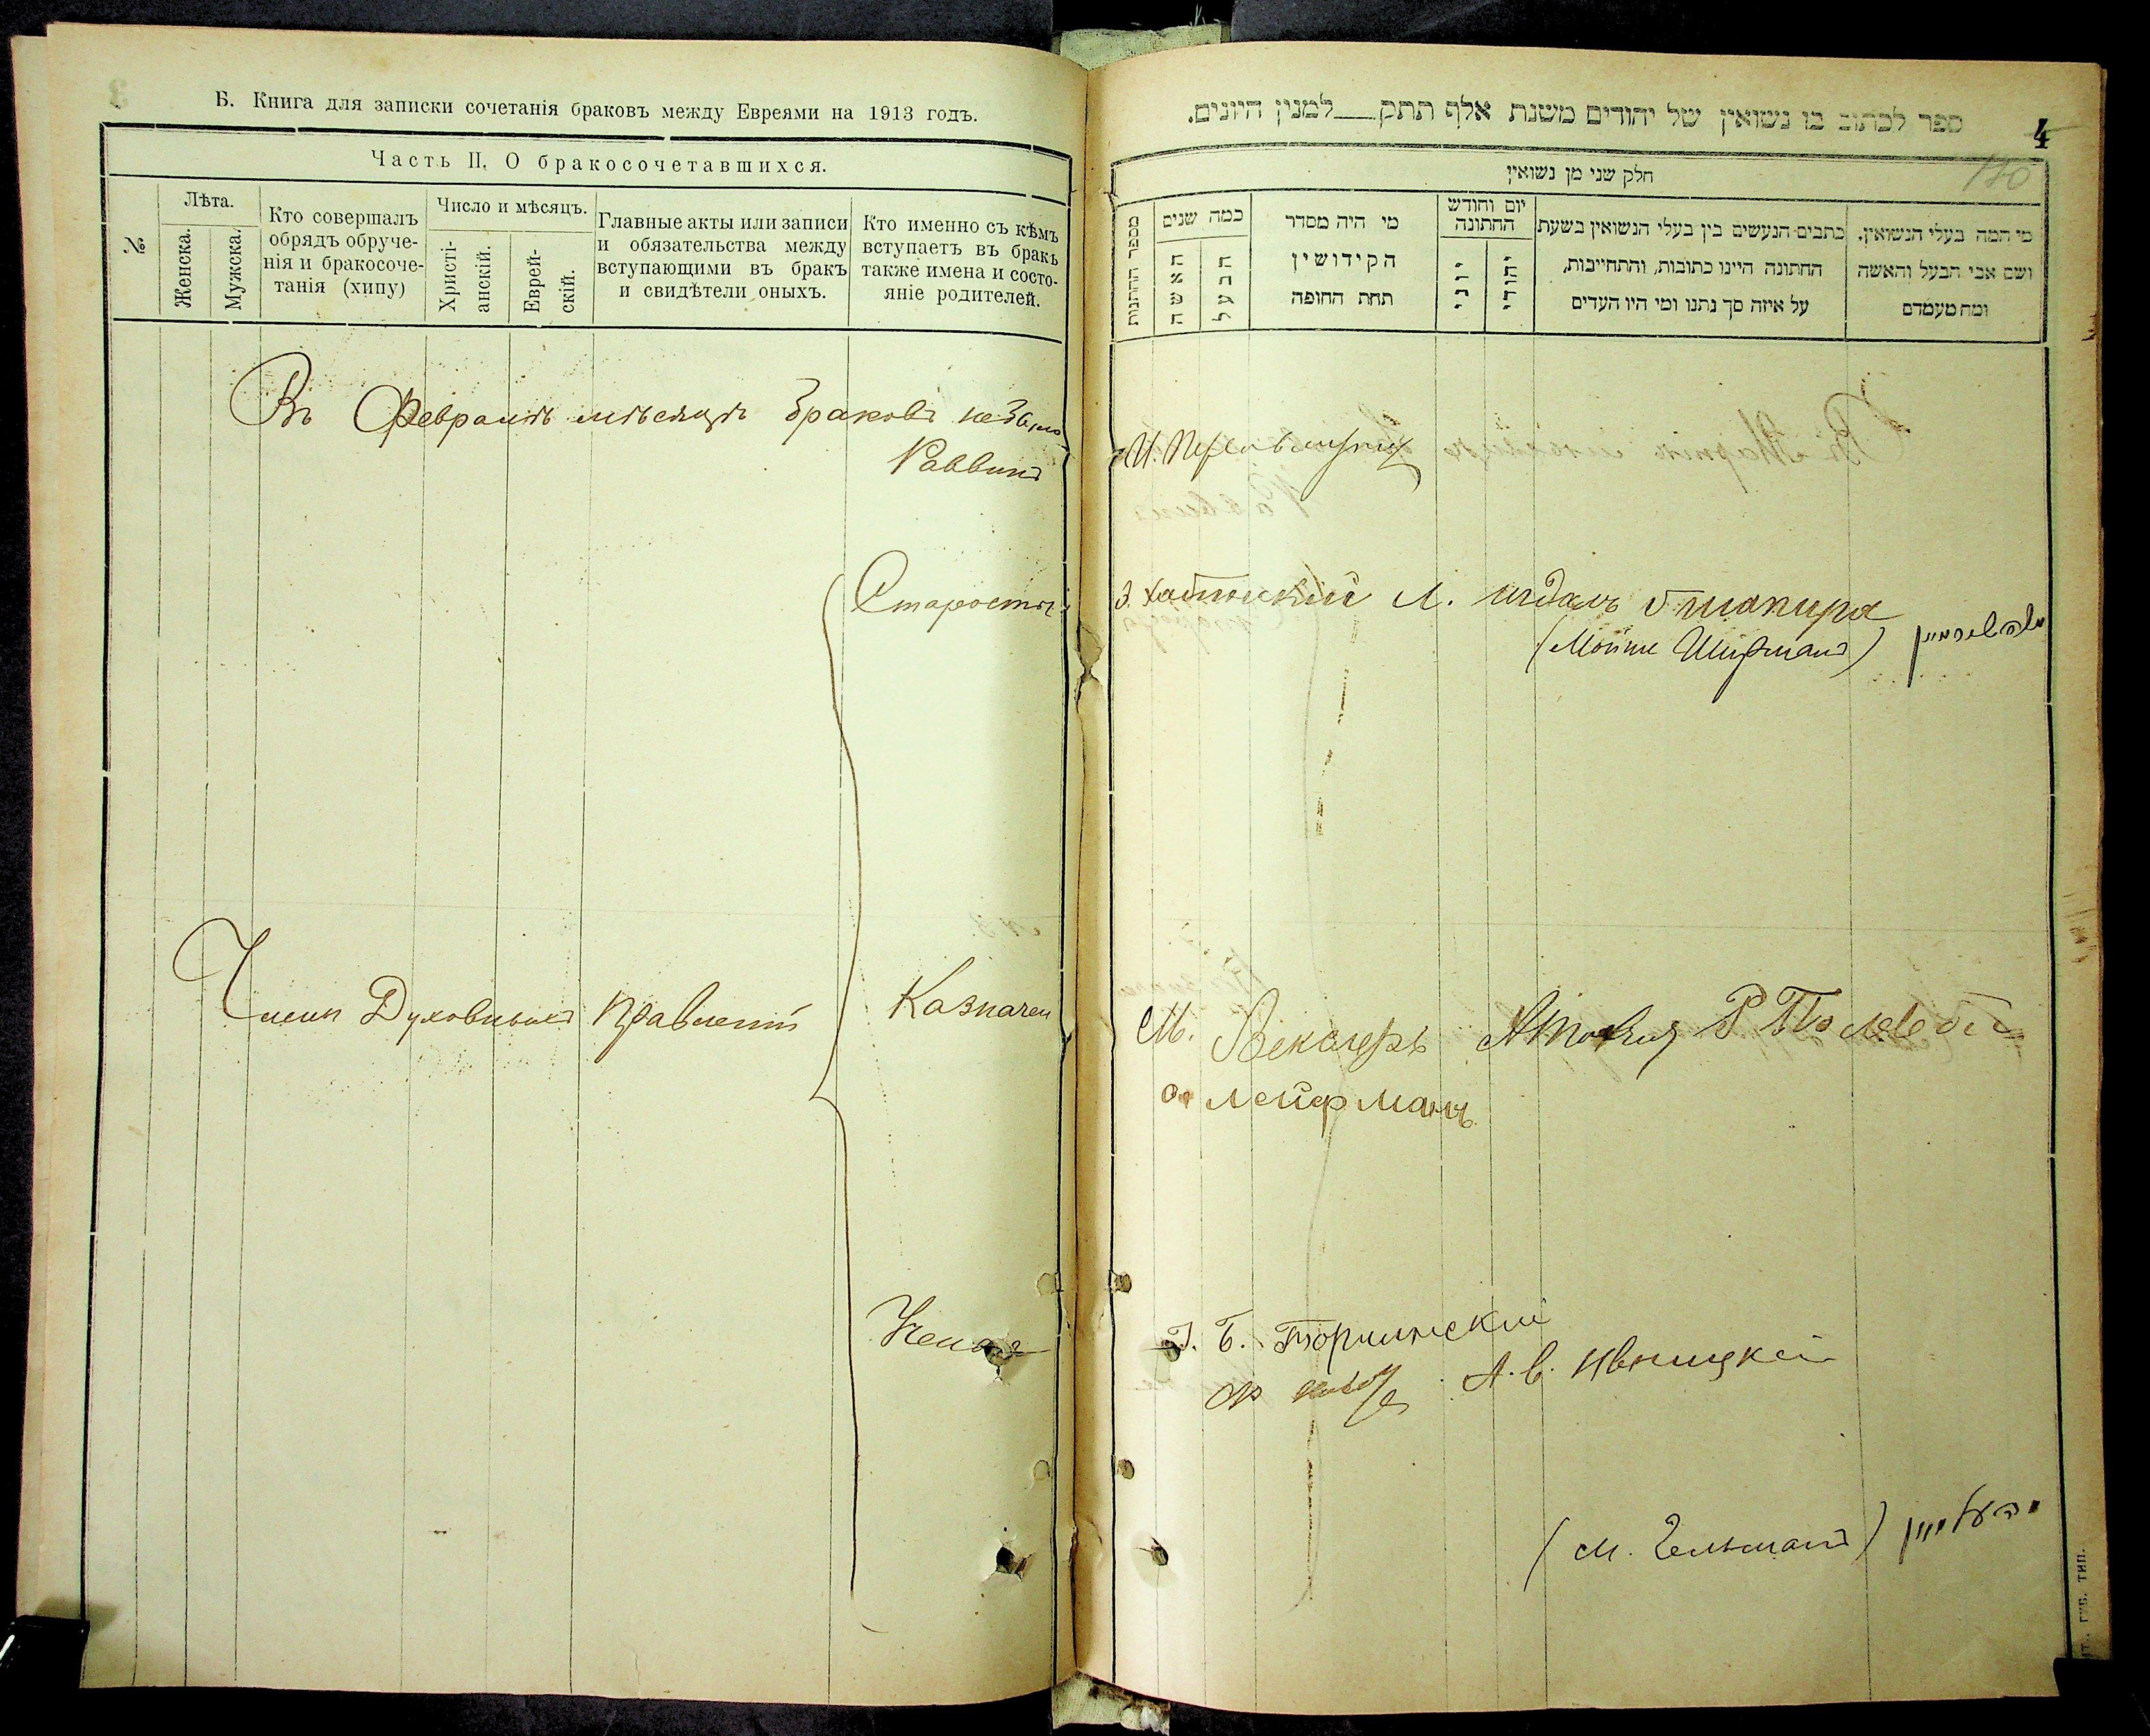 Б. Книга для записки сочетанія браковъ между Евреями на 1913 годъ.
Часть II. О бракосочетавшихся.
№
Лѣта.
Женска.
Мужска.
Кто совершалъ
обрядъ обруче-
нія и бракосоче-
танія (хипу)
Число и мѣсяцъ.
Христі-
анскій.
Еврей-
скій.
Главные акты или записи
и обязательства между
вступающими въ бракъ
и свидѣтели оныхъ.
Кто именно съ кѣмъ
вступаетъ въ бракъ
также имена и состо-
яніе родителей.
Въ Февралѣ мѣсяцѣ браковъ не было
Раввинъ
Старосты
Члены Духовныхъ Правленій
Казначеи
Ученые
ספר לכתוב בו נשואין של יהודים משנת אלף תתק למנין היונים.
4
140
חלק שני מן נשואין
מספר החתנות
כמה שנים
האשה
הבעל
מי היה מסדר
הקידושין
תחת החופה
יום וחודש
החתונה
יוני
יהודי
כתבים הנעשים בין בעלי הנשואין בשעת
החתונה היינו כתובות, והתחייבות,
על איזה סך נתנו ומי היו העדים
מי המה בעלי הנשואין,
ושם אבי הבעל והאשה
ומה מעמדם
З. Хатинскій Л. шапира
(Мойше Шифманъ)
М. Векслеръ
Лейфманъ
Б. Торчинскій
А. В. Ивницкій
(М. Гельманъ)
ГУБ. ТИП.